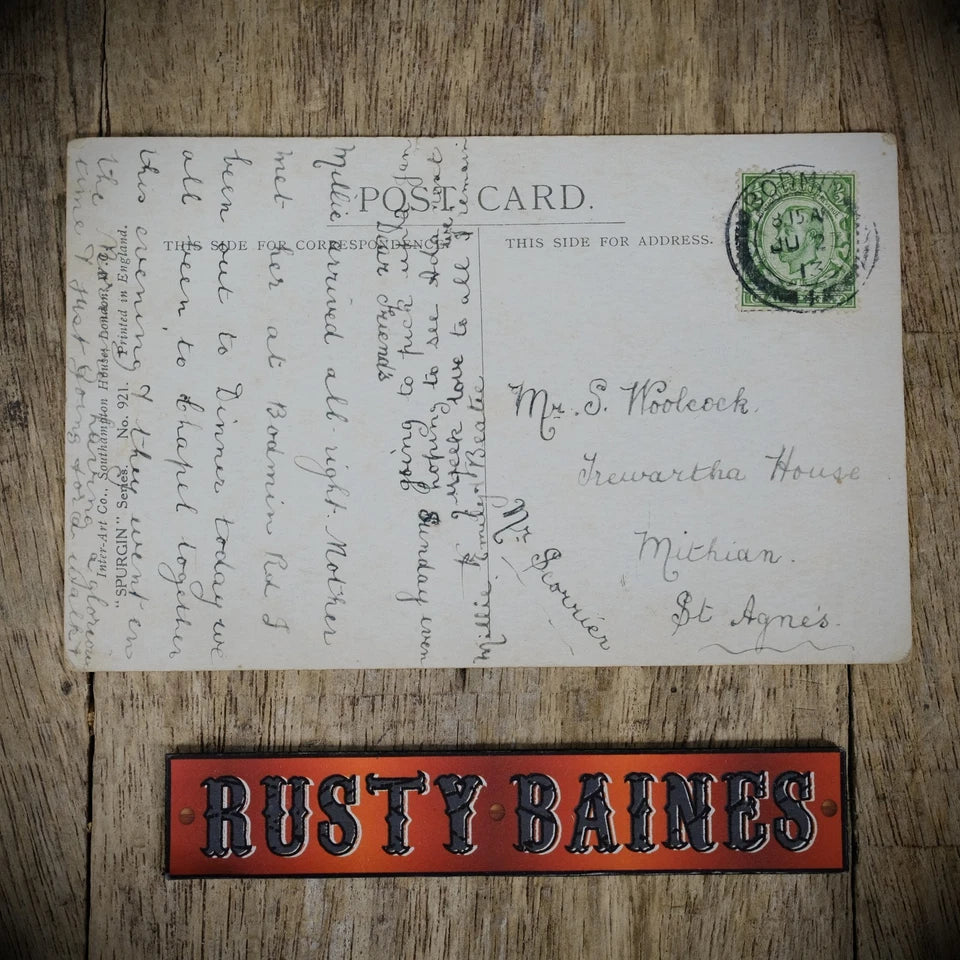 POST CARD.
THIS SIDE FOR CORRESPONDENCE
THIS SIDE FOR ADDRESS.
BODMIN
8.15 A
JU
13
Dear Friends
Millie arrived all right. Mother
met her at Bodmin Rd I
been out to Dinner today we
all been to Chapel together
this evening & they went on
the having a glorious
time & just going for a walk
going to
Sunday even
hoping to see Ada next
week love to all
remain
Millie
Beatie
Inter-Art Co., Southampton House, London, W.C.
"SPURGIN" Series. No. 921. Printed in England.
Mr. S. Woolcock.
Trewartha House
Mithian.
St Agnes.
Nr Scorrier
RUSTY BAINES